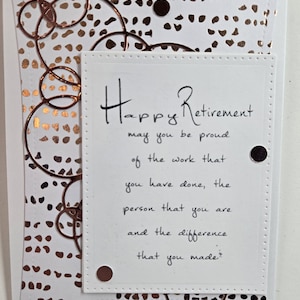 Happy Retirement
may you be proud
of the work that
you have done, the
person that you are
and the difference
that you made!